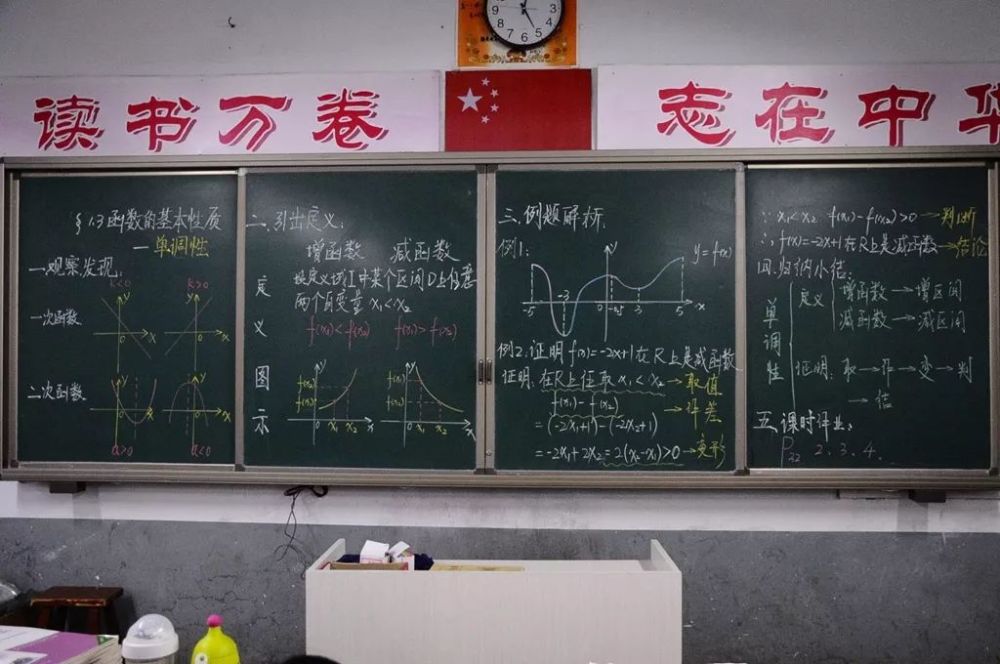 读书万卷
志在中华
§1.3函数的基本性质
—单调性
一.观察发现:
k<0 k>0
一次函数
二次函数
a>0 a<0
二.引出定义:
增函数 减函数
定义
设定义域I中某个区间D上任意
两个自变量x₁<x₂
f(x₁)<f(x₂) f(x₁)>f(x₂)
图示
f(x₂)
f(x₁)
x₁ x₂ x
f(x₁)
f(x₂)
x₁ x₂ x
三.例题解析:
例1:
y y=f(x)
-5 -3 0 3 5 x
例2.证明f(x)=-2x+1在R上是减函数
证明:在R上任取x₁<x₂→取值
f(x₁)-f(x₂) →作差
=(-2x₁+1)-(-2x₂+1)
=-2x₁+2x₂=2(x₂-x₁)>0→变形
∵x₁<x₂ f(x₁)-f(x₂)>0→判断
∴f(x)=-2x+1在R上是减函数→结论
四.归纳小结:
单调性
定义 增函数→增区间
减函数→减区间
证明:取→作→变→判
→结
五.课时作业:
P32 2.3.4.